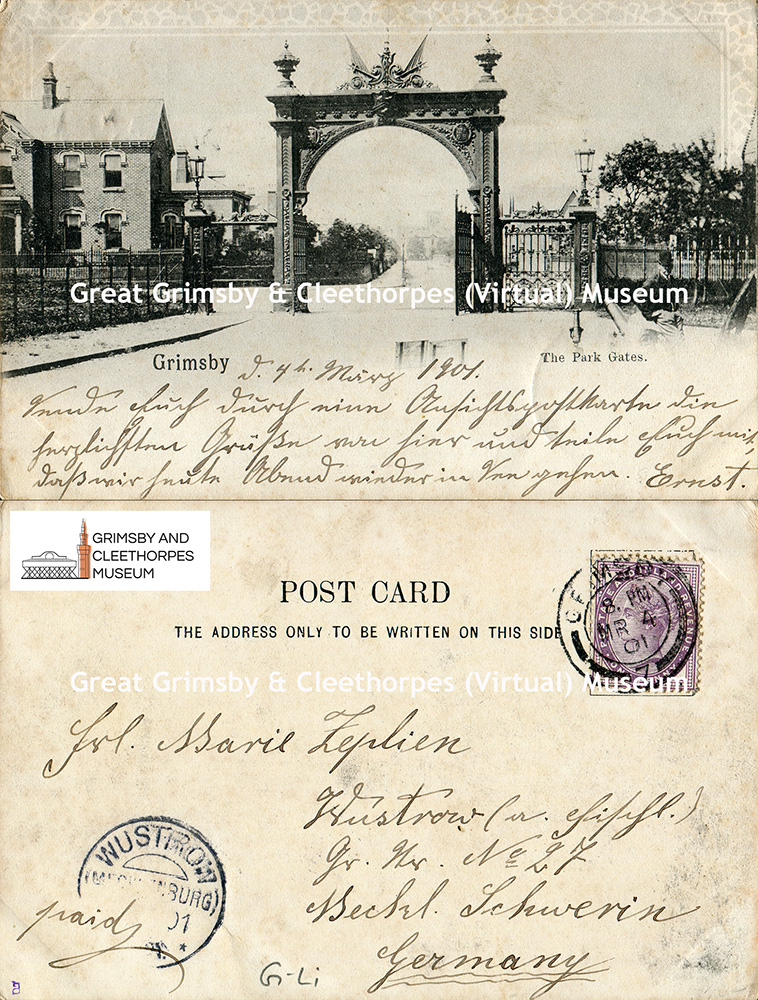 Great Grimsby & Cleethorpes (Virtual) Museum
Grimsby d. 4t. März 1901.
The Park Gates.
Sende Euch durch eine Ansichtspostkarte die
herzlichsten Grüße von hier und teile Euch mit,
daß wir heute Abend wieder in See gehen. Ernst.
GRIMSBY AND
CLEETHORPES
MUSEUM
POST CARD
THE ADDRESS ONLY TO BE WRITTEN ON THIS SIDE
GRIMSBY
8 PM
MR 4
01
Great Grimsby & Cleethorpes (Virtual) Museum
Frl. Marie Zeplien
Wustrow (a. Fischl.)
Gr. Nr. No 27
Meckl. Schwerin
Germany
WUSTROW
(MECKLENBURG)
01
paid
G-Li